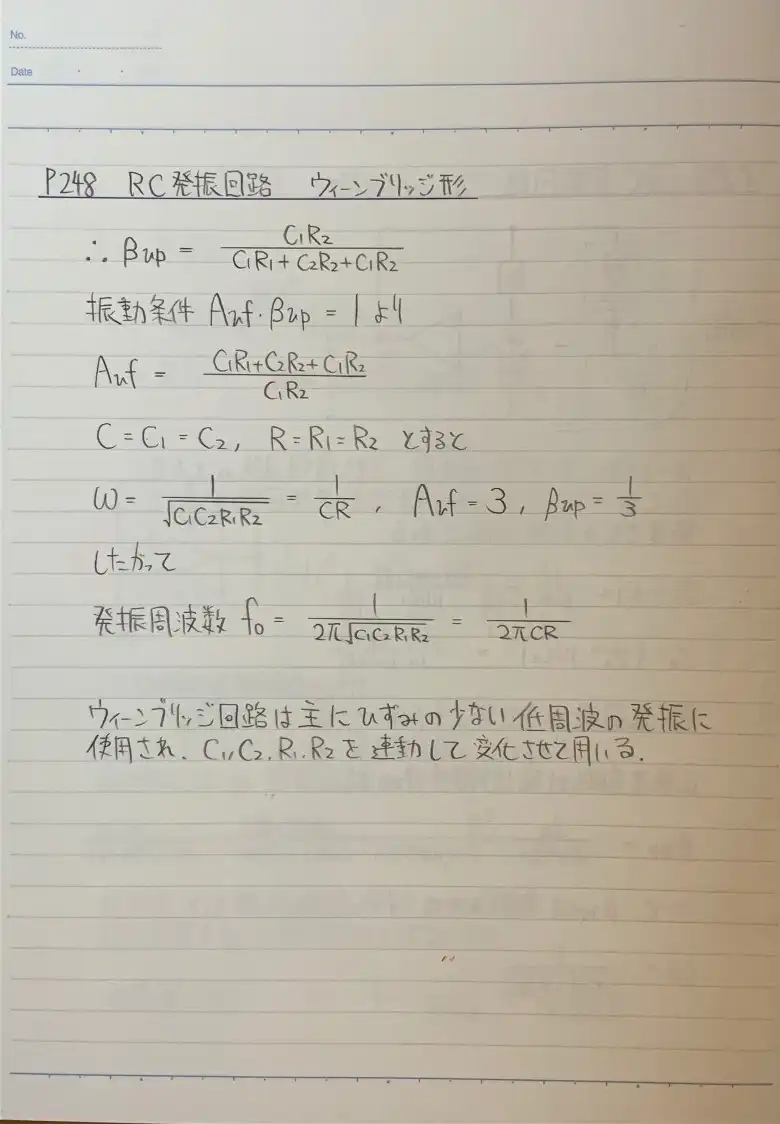 No.
Date
P248 RC発振回路 ウィーンブリッジ形
∴ βup = C1R2 / (C1R1 + C2R2 + C1R2)
振動条件 Auf・βup = 1 より
Auf = (C1R1+C2R2+C1R2) / C1R2
C = C1 = C2, R = R1 = R2 とすると
ω = 1/√(C1C2R1R2) = 1/CR , Auf = 3 , βup = 1/3
したがって
発振周波数 f0 = 1/(2π√(C1C2R1R2)) = 1/(2πCR)
ウィーンブリッジ回路は主にひずみの少ない低周波の発振に
使用され、C1, C2, R1, R2 を連動して変化させて用いる.